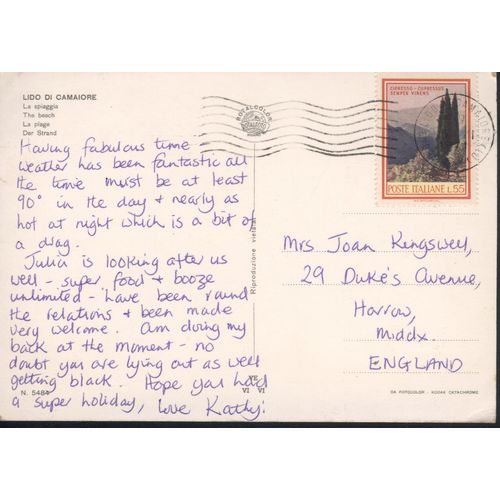 LIDO DI CAMAIORE
La spiaggia
The beach
La plage
Der Strand
Having fabulous time
weather has been fantastic all
the time must be at least
90° in the day & nearly as
hot at night which is a bit of
a drag.
Julia is looking after us
well - super food & booze
unlimited - have been round
the relations & been made
very welcome. Am doing my
back at the moment - no
doubt you are lying out as well
getting black. Hope you had
a super holiday, love Kathy.
N. 5484
VE
VI VI
ROTALCOLOR
Riproduzione vietata
CIPRESSO - CUPRESSUS
SEMPER VIRENS
POSTE ITALIANE L.55
Mrs Joan Kingswell,
29 Duke's Avenue,
Harrow,
Middx.
ENGLAND
DA FOTOCOLOR - KODAK EKTACHROME